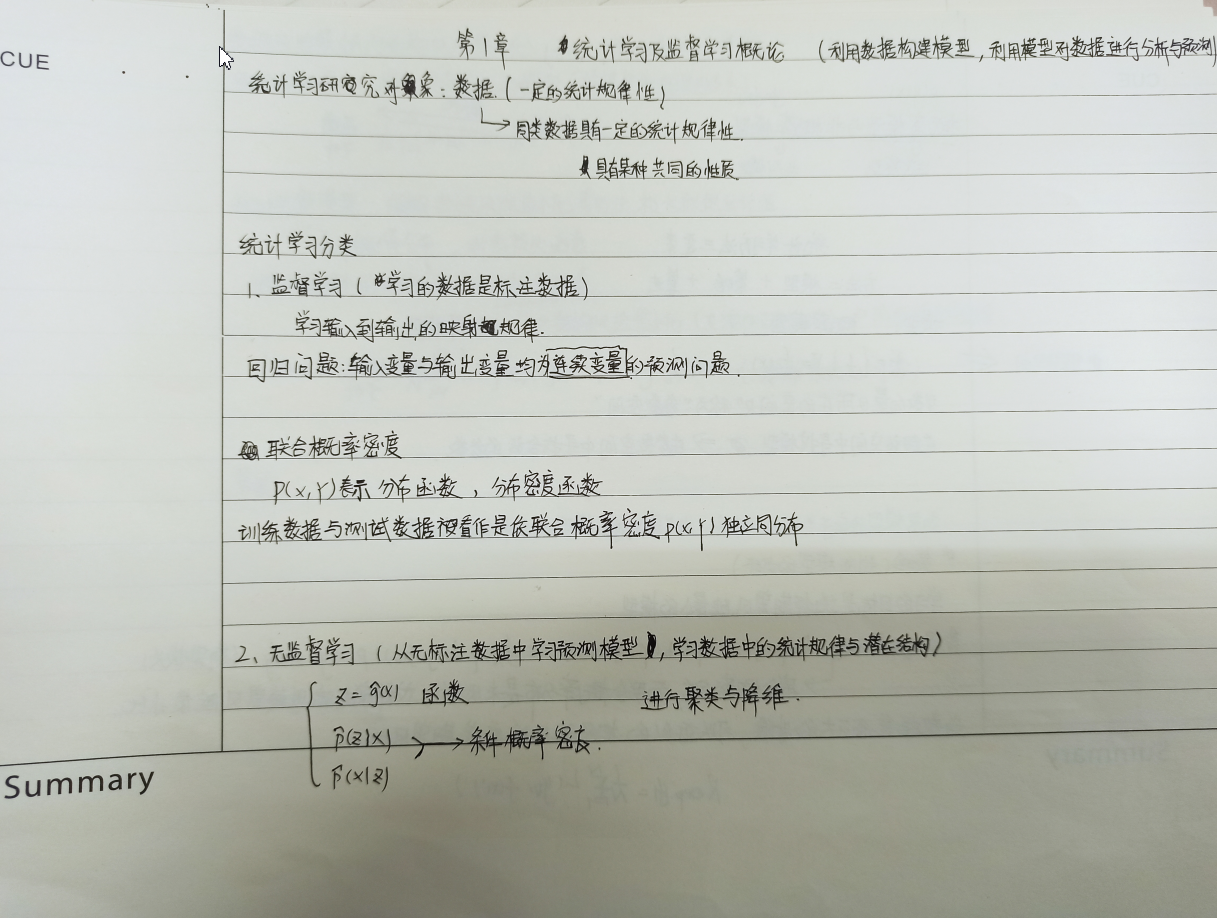 CUE
第1章 统计学习及监督学习概论 (利用数据构建模型,利用模型对数据进行分析与预测)
统计学习研究对象:数据.(一定的统计规律性)
→同类数据具有一定的统计规律性.
具有某种共同的性质.
统计学习分类
1、监督学习(学习的数据是标注数据)
学习输入到输出的映射规律.
回归问题:输入变量与输出变量均为连续变量的预测问题.
联合概率密度
P(x,Y)表示分布函数,分布密度函数
训练数据与测试数据被看作是依联合概率密度P(x,Y)独立同分布
2、无监督学习(从无标注数据中学习预测模型,学习数据中的统计规律与潜在结构)
z=ĝ(x) 函数 进行聚类与降维.
P̂(z|x) →条件概率密度.
P̂(x|z)
Summary